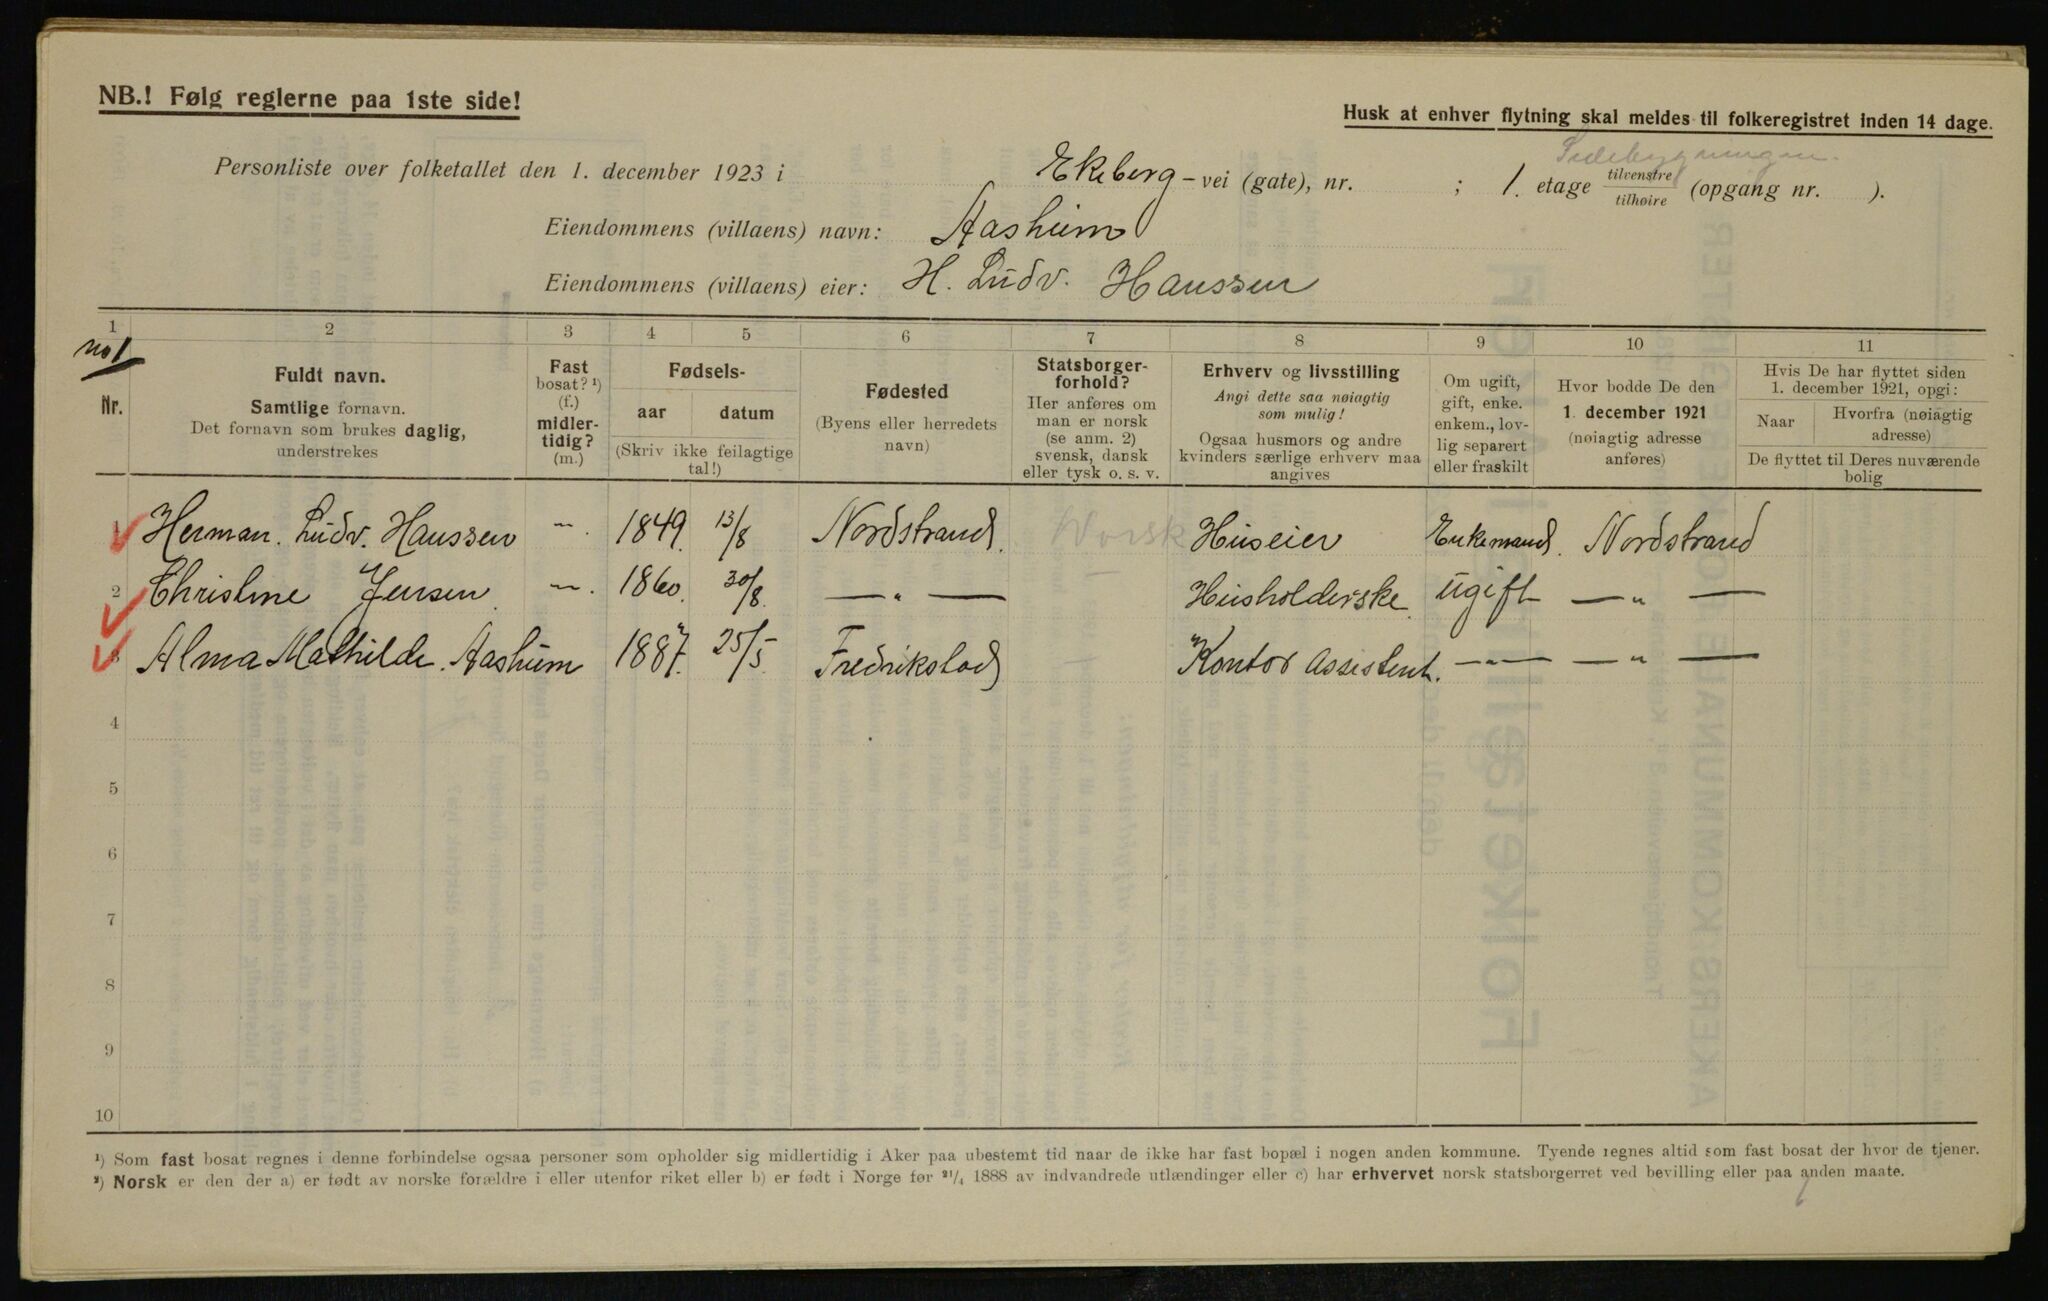 NB.! Følg reglerne paa 1ste side!
Husk at enhver flytning skal meldes til folkeregistret inden 14 dage.
Sidebygningen.
Personliste over folketallet den 1. december 1923 i Ekeberg - vei (gate), nr. ; 1. etage tilvenstre tilhøire (opgang nr. ).
Eiendommens (villaens) navn: Aasheim
Eiendommens (villaens) eier: H. Ludv. Hanssen
1 2 3 4 5 6 7 8 9 10 11
no 1
Nr.
Fuldt navn.
Samtlige fornavn.
Det fornavn som brukes daglig,
understrekes
Fast
bosat? ¹)
(f.)
midler-
tidig?
(m.)
Fødsels-
aar datum
(Skriv ikke feilagtige
tal!)
Fødested
(Byens eller herredets
navn)
Statsborger-
forhold?
Her anføres om
man er norsk
(se anm. 2)
svensk, dansk
eller tysk o. s. v.
Erhverv og livsstilling
Angi dette saa nøiagtig
som mulig!
Ogsaa husmors og andre
kvinders særlige erhverv maa
angives
Om ugift,
gift, enke.
enkem., lov-
lig separert
eller fraskilt
Hvor bodde De den
1. december 1921
(nøiagtig adresse
anføres)
Hvis De har flyttet siden
1. december 1921, opgi:
Naar Hvorfra (nøiagtig
adresse)
De flyttet til Deres nuværende
bolig
1 Herman. Ludv. Hanssen — 1849. 13/8 Nordstrand. Norsk Huseier Enkemand. Nordstrand
2 Christine Jensen — . 1860. 30/8. — „ — Husholderske. ugift — „ —
3 Alma Mathilde. Aasheim 1887. 25/5 Fredrikstad Kontor Assistent. — „ — — „ —
4
5
6
7
8
9
10
¹) Som fast bosat regnes i denne forbindelse ogsaa personer som opholder sig midlertidig i Aker paa ubestemt tid naar de ikke har fast bopæl i nogen anden kommune. Tyende regnes altid som fast bosat der hvor de tjener.
²) Norsk er den der a) er født av norske forældre i eller utenfor riket eller b) er født i Norge før ²¹/₄ 1888 av indvandrede utlændinger eller c) har erhvervet norsk statsborgerret ved bevilling eller paa anden maate.